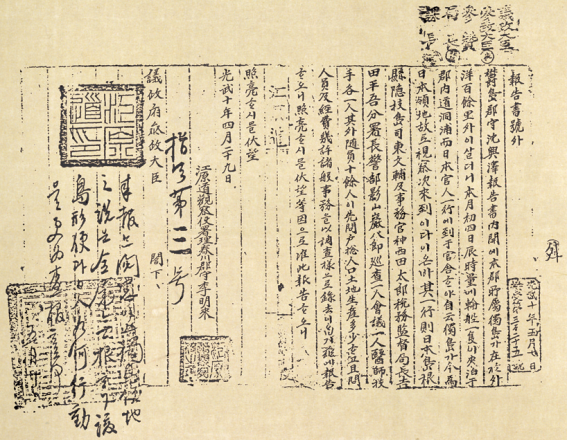 議政大臣
參政大臣
參贊
局長
課長
報告書號外
鬱島郡守沈興澤報告書內開에本郡所屬獨島가在於外
洋百餘里外이살더니本月初四日辰時量에輪船一隻이來泊于
郡內道洞浦而日本官人一行에到于官舍ᄒᆞ야自云獨島가今爲
日本領地故로視察次來到이다이온바其一行則日本島根
縣隱岐島司東文輔及事務官神西田太郞稅務監督局長吉
田平吾分署長警部影山巖八郞巡査一人會議員一人醫師技
手各一人其外隨員十餘人이先問戶摠人口土地生産多少ᄒᆞ고且問
人員及經費幾許諸般事務을以調査樣으로錄去이압기玆에報告
ᄒᆞ오니照亮ᄒᆞ시믈伏望等因으로准此報告ᄒᆞ오니
照亮ᄒᆞ시믈伏望
光武十年四月二十九日
江原道觀察使署理春川郡守李明來
議政府參政大臣 閣下
指令第三号
來報는閱悉이고獨島領地
之說은全屬無根하나該
島形便과日人如何行動